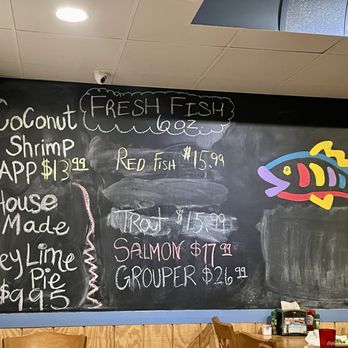 Coconut
Shrimp
APP $13.99
House
Made
ey Lime
Pie
$9.95
FRESH FISH
6oz
RED FISH $15.99
TROUT $15.99
SALMON $17.99
GROUPER $26.99